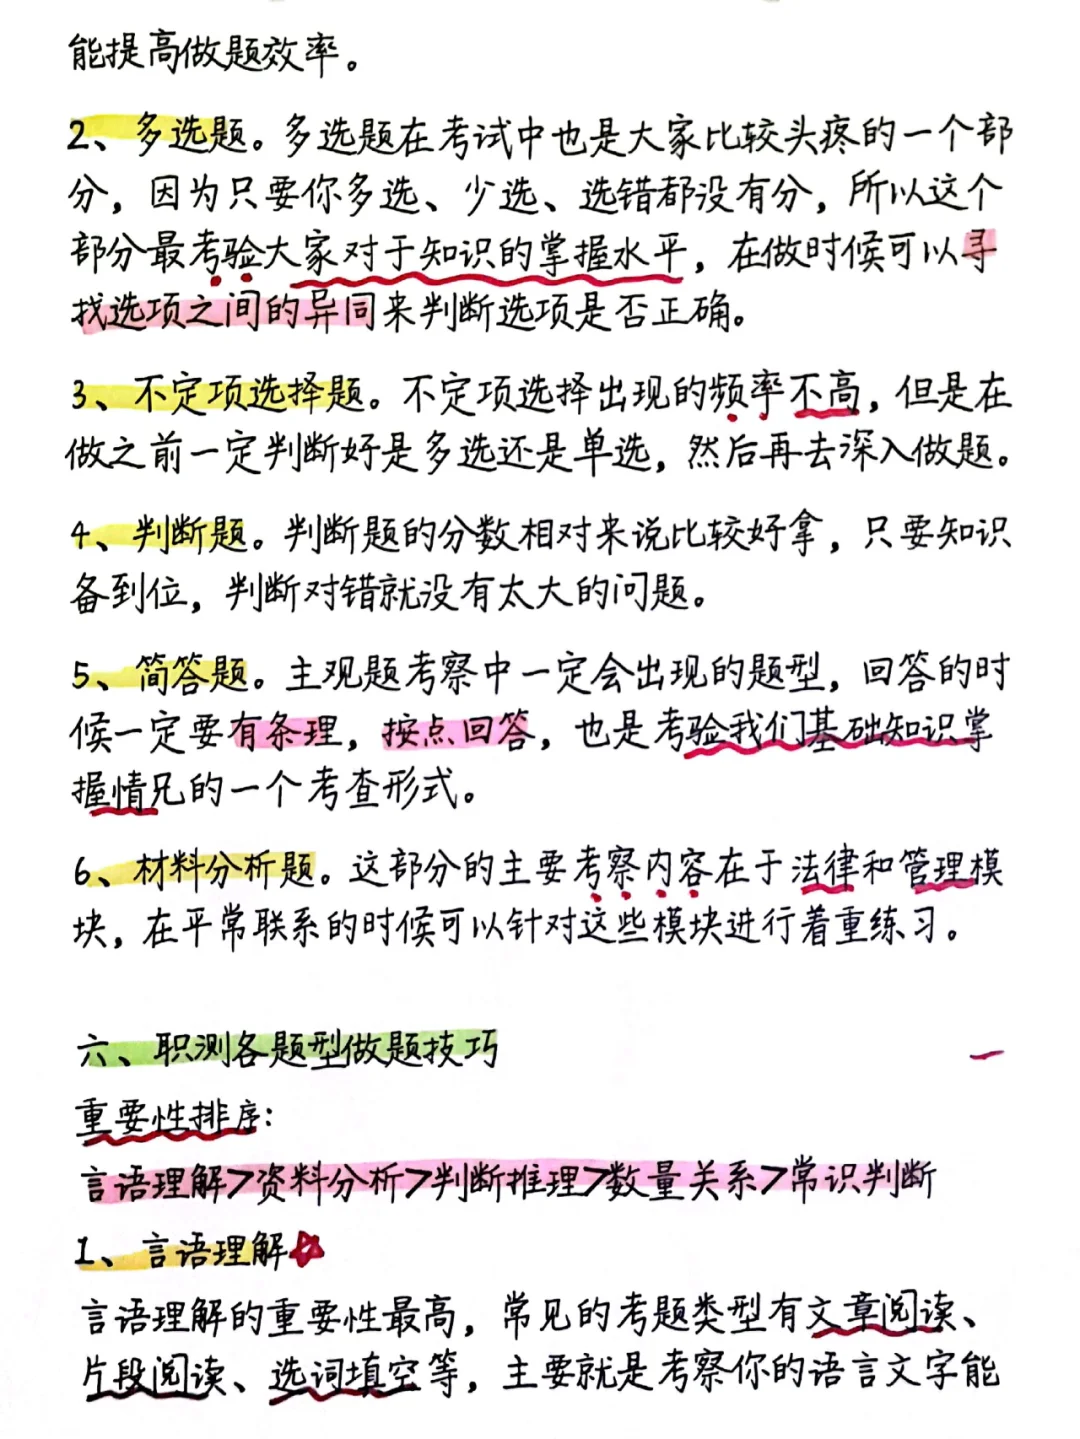 能提高做题效率。
2、多选题。多选题在考试中也是大家比较头疼的一个部
分，因为只要你多选、少选、选错都没有分，所以这个
部分最考验大家对于知识的掌握水平，在做时候可以寻
找选项之间的异同来判断选项是否正确。
3、不定项选择题。不定项选择出现的频率不高，但是在
做之前一定判断好是多选还是单选，然后再去深入做题。
4、判断题。判断题的分数相对来说比较好拿，只要知识
备到位，判断对错就没有太大的问题。
5、简答题。主观题考察中一定会出现的题型，回答的时
候一定要有条理，按点回答，也是考验我们基础知识掌
握情况的一个考查形式。
6、材料分析题。这部分的主要考察内容在于法律和管理模
块，在平常联系的时候可以针对这些模块进行着重练习。
六、职测各题型做题技巧
重要性排序：
言语理解>资料分析>判断推理>数量关系>常识判断
1、言语理解
言语理解的重要性最高，常见的考题类型有文章阅读、
片段阅读、选词填空等，主要就是考察你的语言文字能